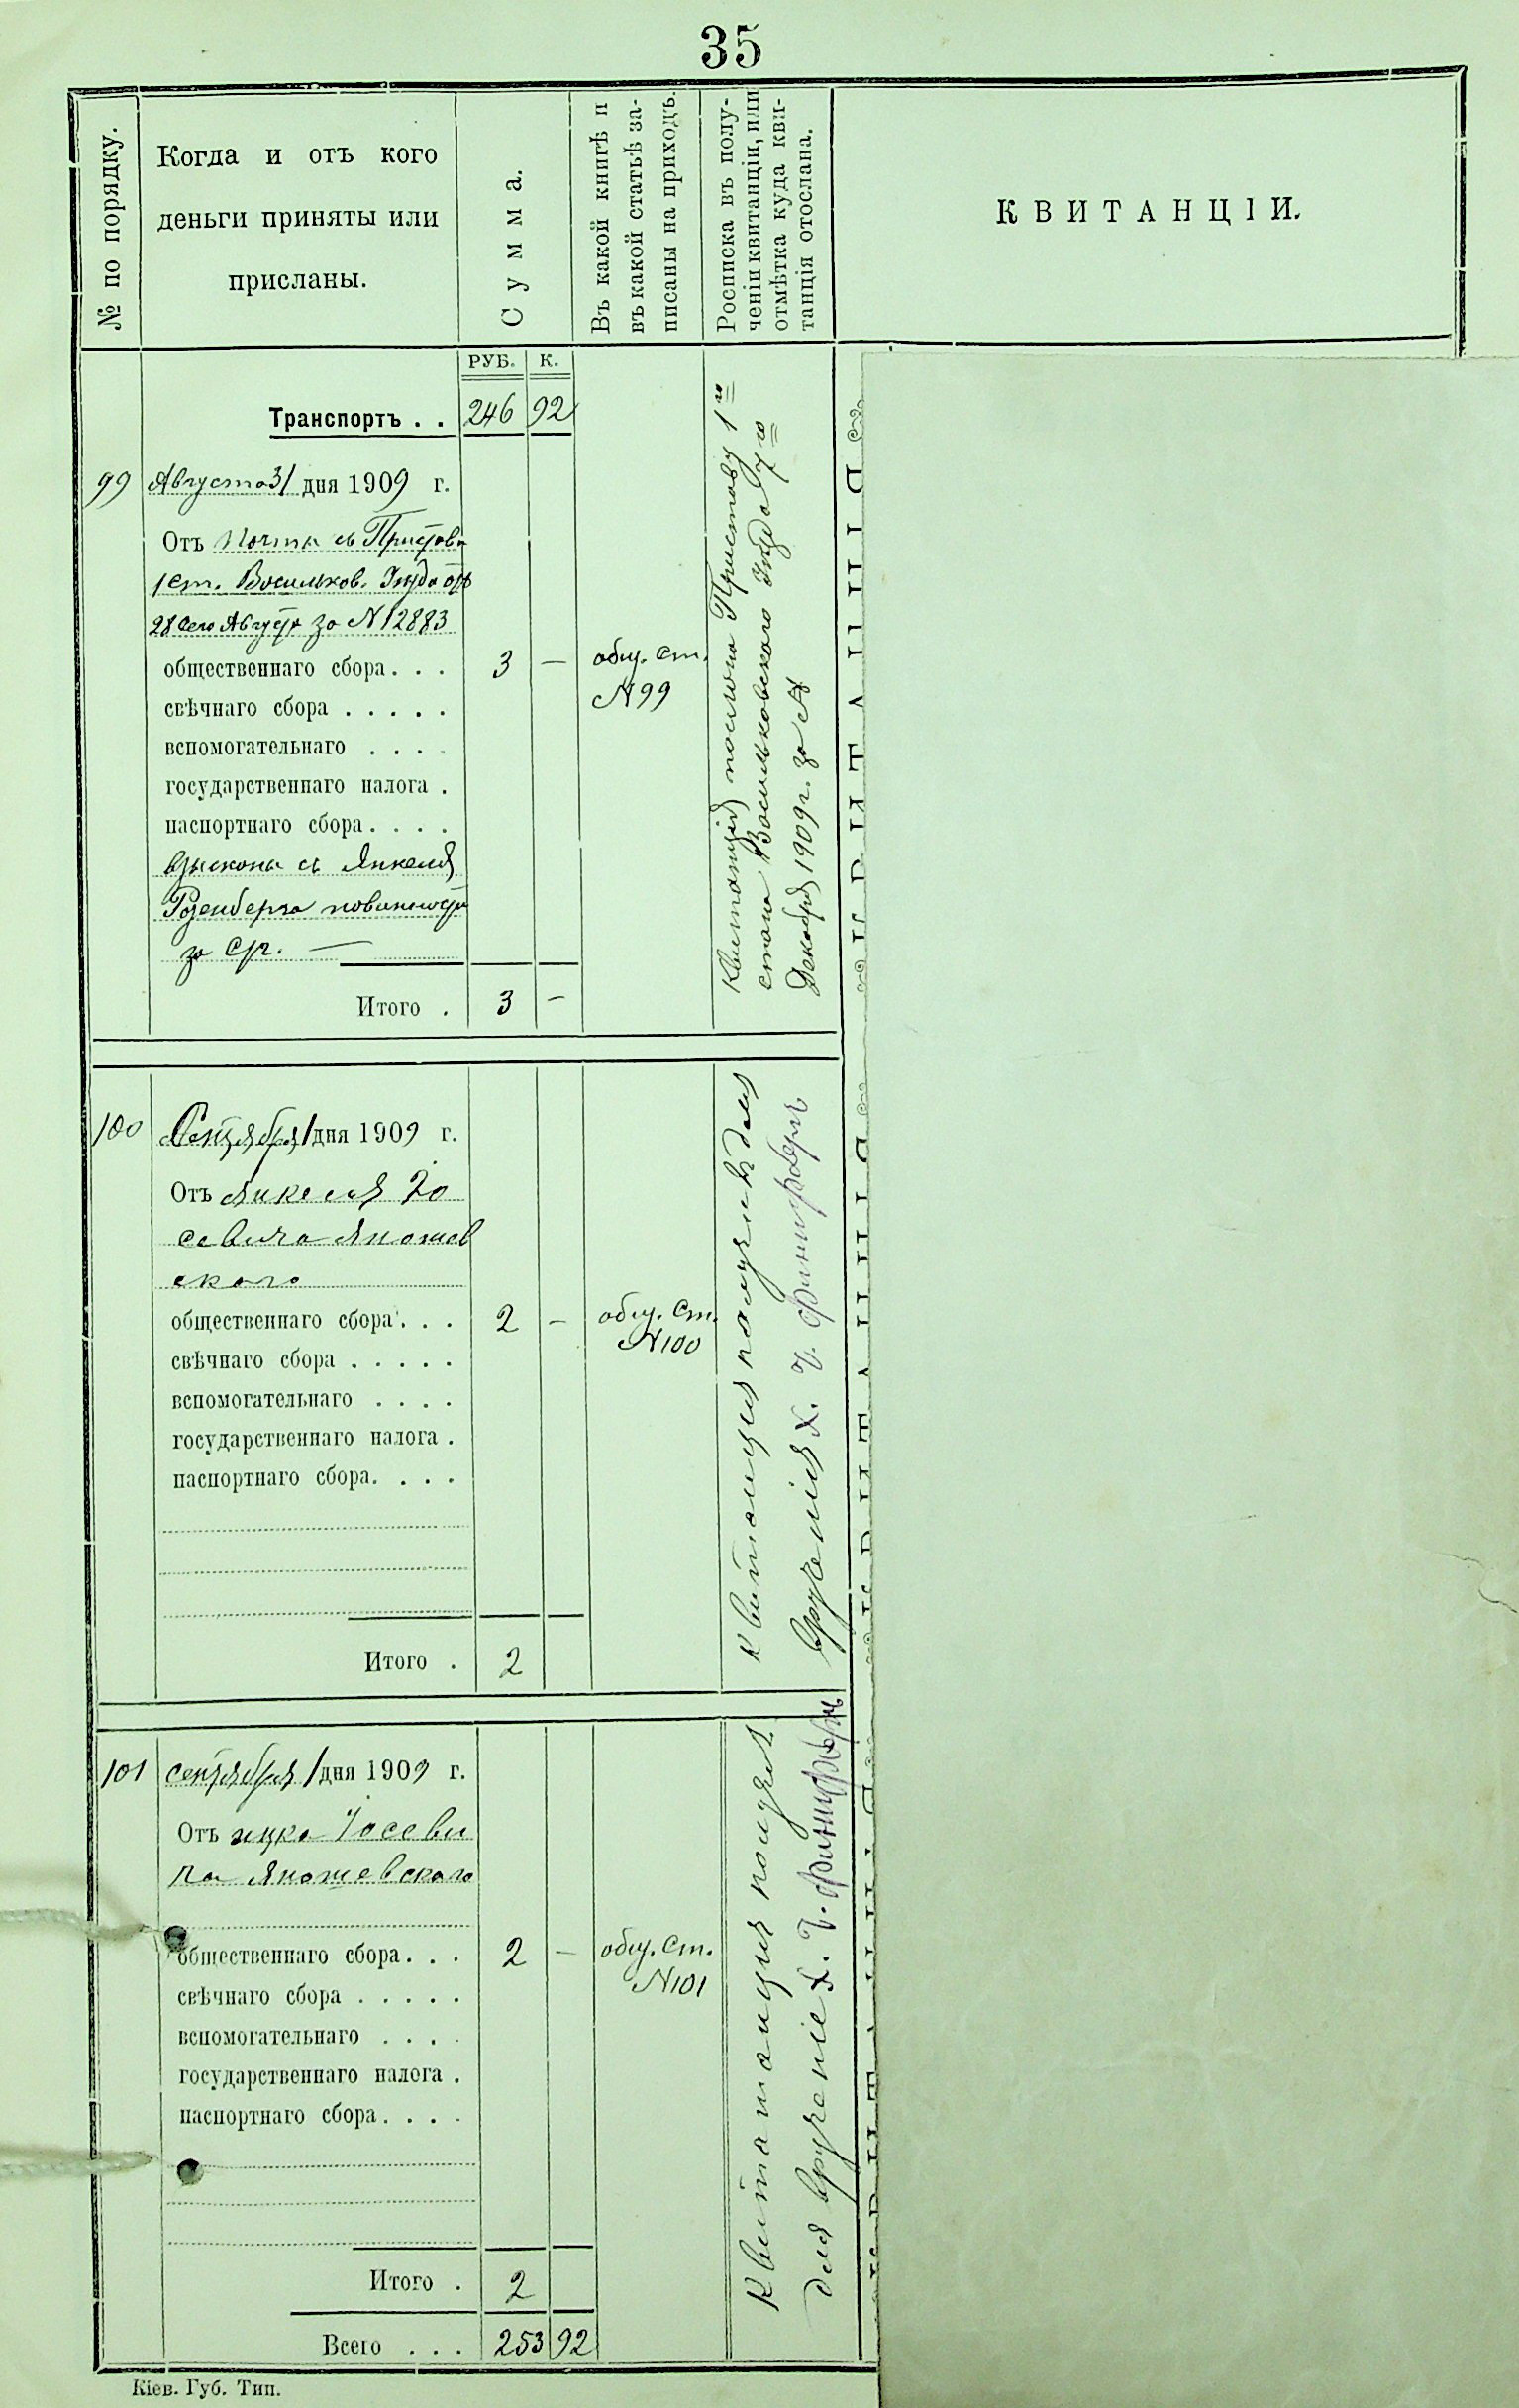 35
№ по порядку.
Когда и отъ кого
деньги приняты или
присланы.
Сумма.
Въ какой книгѣ и
въ какой статьѣ за-
писаны на приходъ.
Росписка въ полу-
ченіи квитанціи, или
отмѣтка куда кви-
танція отослана.
КВИТАНЦІИ.
РУБ. К.
Транспортъ . . 246 92
99 Августа 31 дня 1909 г.
Отъ Почты съ Пристава
1 ст. Васильков. Уѣзда отъ
28 сего Августа за № 12883
общественнаго сбора . . . 3 — общ. ст.
№ 99
свѣчнаго сбора . . . . .
вспомогательнаго . . . .
государственнаго налога .
паспортнаго сбора . . . .
взысканы съ Янкеля
Розенберга повинности
за
Итого . 3 —
Квитанція послана Приставу 1го
стана Васильковского Уѣзда 7го
Декабря 1909 г. за №
100 Сентября 1 дня 1909 г.
Отъ Янкеля Іо
севича Яношев
скаго
общественнаго сбора . . . 2 — общ. ст.
№ 100
свѣчнаго сбора . . . . .
вспомогательнаго . . . .
государственнаго налога .
паспортнаго сбора . . . .
Итого . 2
Квитанция получил для
вручения Х. Ч.
101 сентября 1 дня 1909 г.
Отъ ицка Іосеви
ча Яношевскаго
общественнаго сбора . . . 2 — общ. ст.
№ 101
свѣчнаго сбора . . . . .
вспомогательнаго . . . .
государственнаго налога .
паспортнаго сбора . . . .
Итого . 2
Всего . . . 253 92
Квитанция получил
для вручение Х. Ч.
Кіев. Губ. Тип.